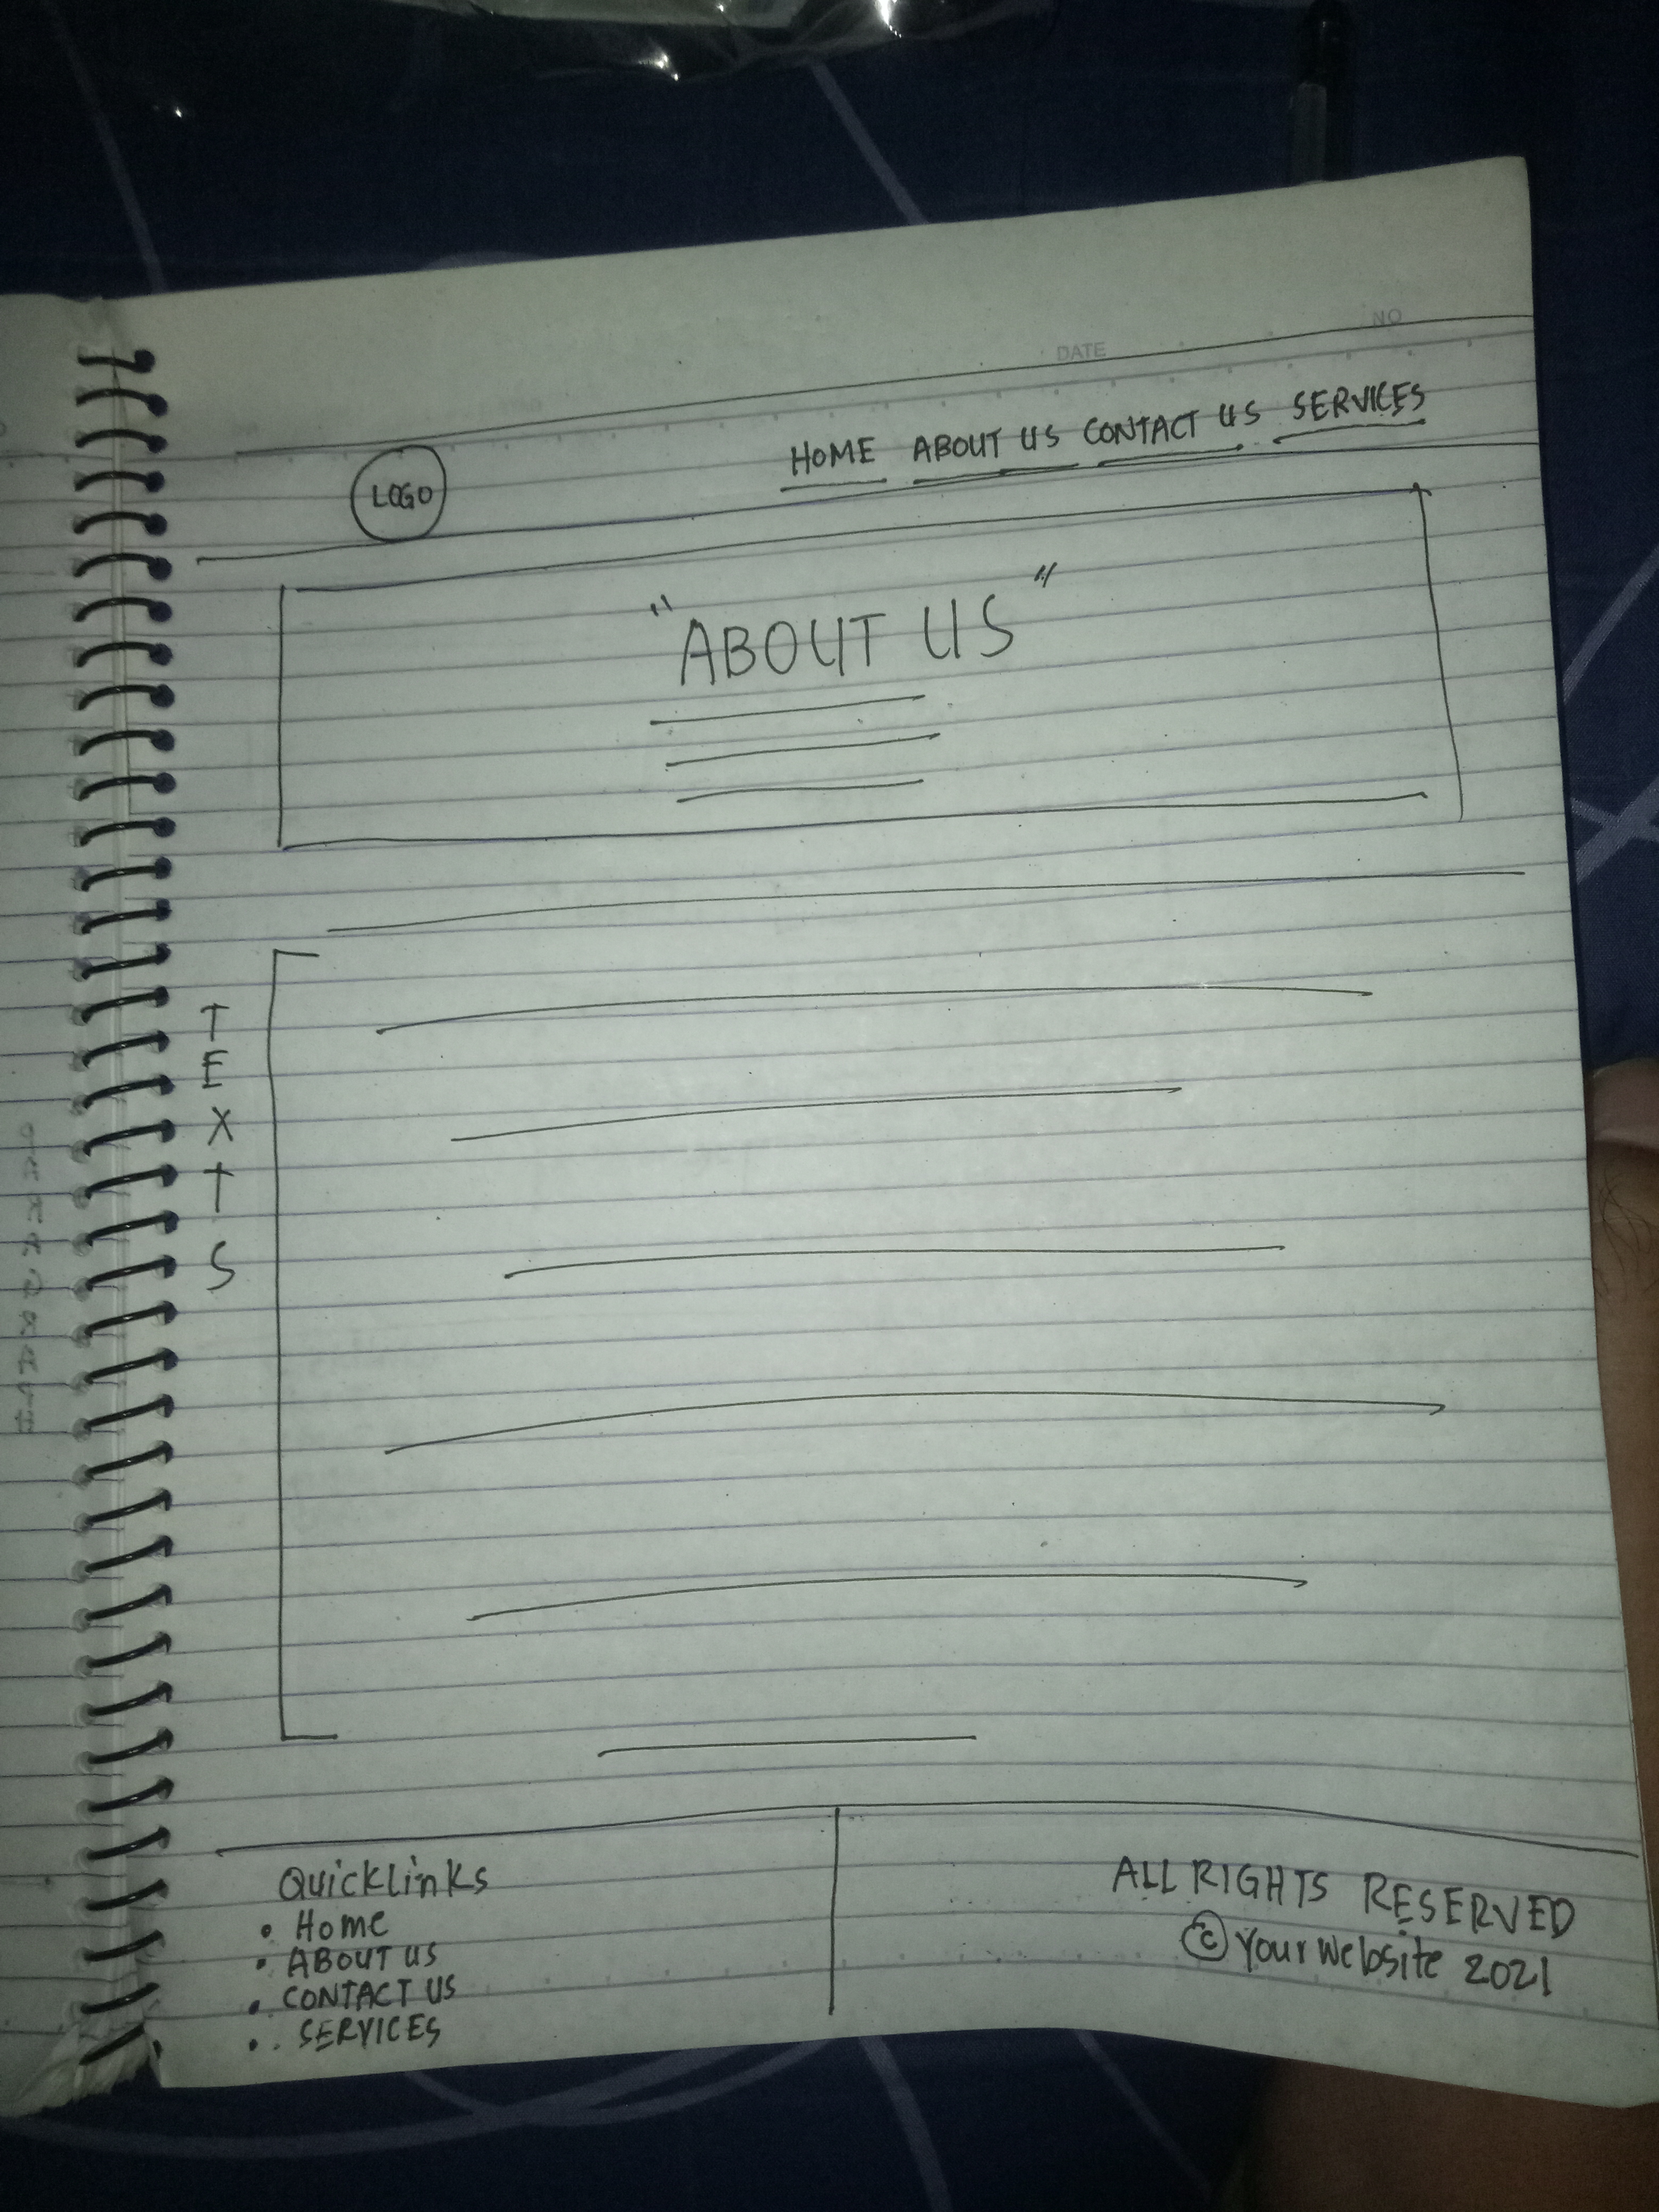 NO
DATE
HOME ABOUT US CONTACT US SERVICES
LOGO
"ABOUT US"
TEXTS
Quicklinks
• Home
• ABOUT US
• CONTACT US
• SERVICES
ALL RIGHTS RESERVED
© Yourwebsite 2021